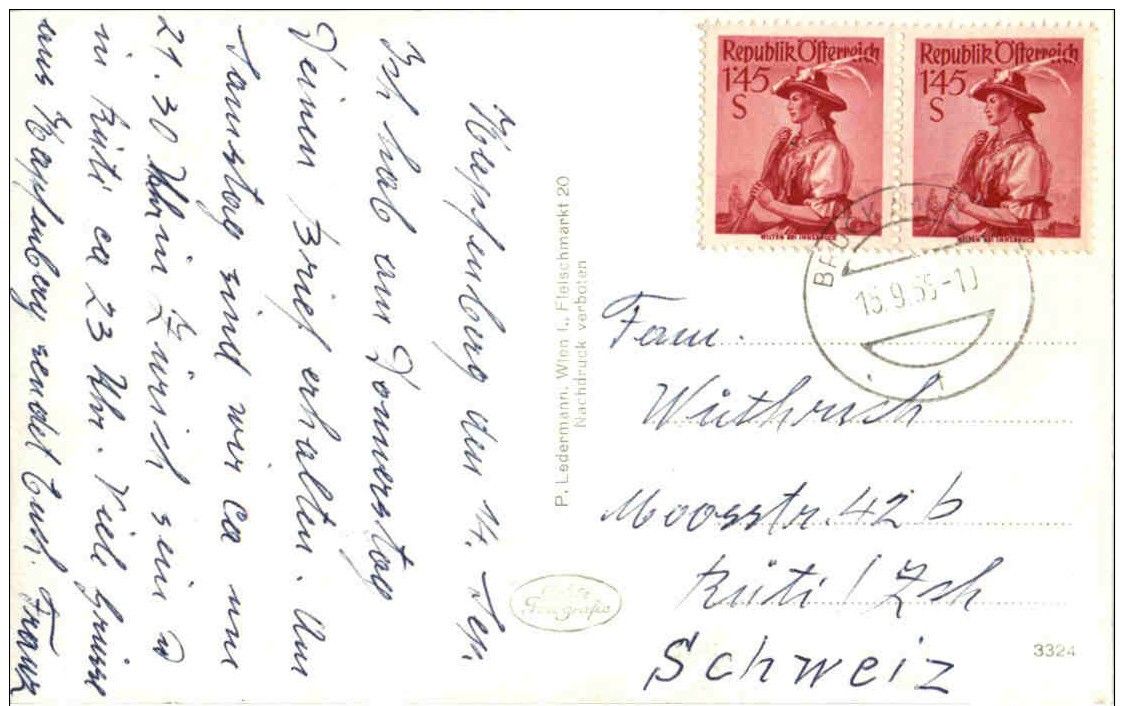 Kapfenberg den 14. Sep.
Ich hab am Donnerstag
Deinen Brief erhalten. Am
Samstag sind wir ca um
21.30 Uhr in Zürich sein u
in Rüti ca 23 Uhr. Viele Grüsse
aus Kapfenberg sendet Euch. Franz
P. Ledermann, Wien I., Fleischmarkt 20
Nachdruck verboten
Echte
Fotografie
Republik Österreich
1'45
S
Republik Österreich
1'45
S
BRUCK
15.9.55-10
1
Fam.
Wüthrich
Moosstr. 42 b
Rüti / Zch
Schweiz
3324